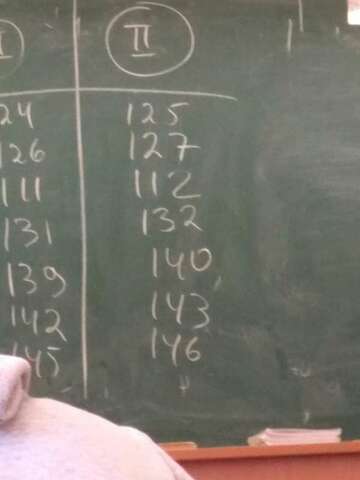 I II
24 125
126 127
111 112
131 132
139 140
142 143
145 146